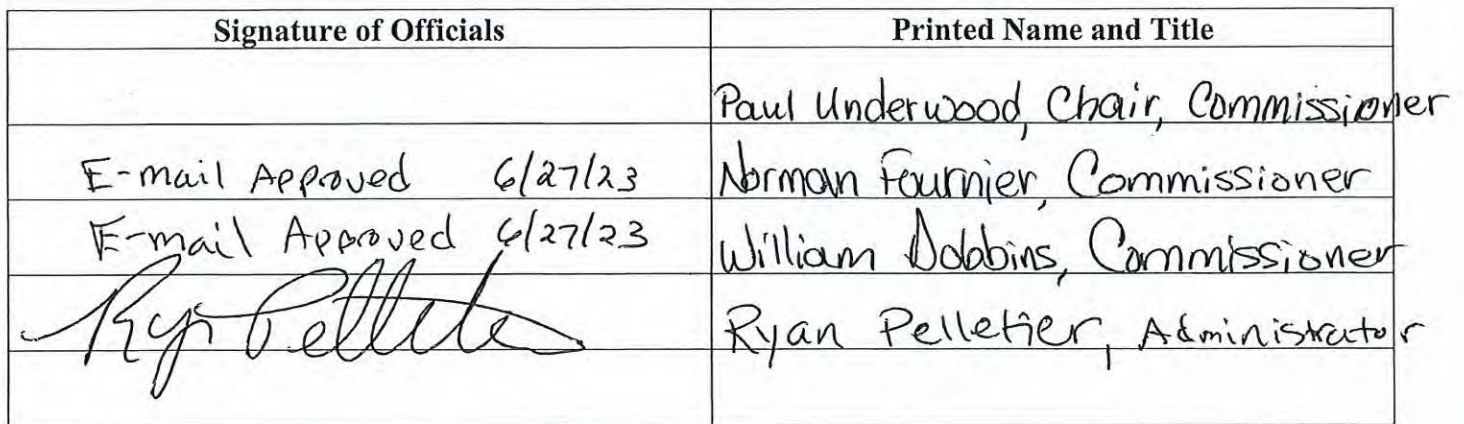 Signature of Officials Printed Name and Title
Paul Underwood, Chair, Commissioner
E-mail Approved 6/27/23 Norman Fournier, Commissioner
E-mail Approved 6/27/23 William Dobbins, Commissioner
Ryan Pelletier Ryan Pelletier, Administrator